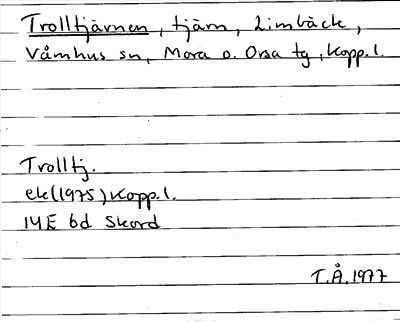 Trolltjärnen, tjärn, Limbäck,
Våmhus sn, Mora o. Orsa tg, Kopp.l.
Trolltj.
ek(1975)Kopp.l.
14E bd Skord
T.Å.1977